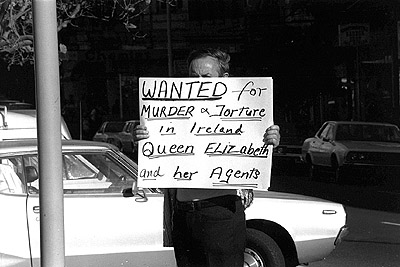 WANTED for
MURDER & Torture
in Ireland
Queen ELIZabeth
and her Agents